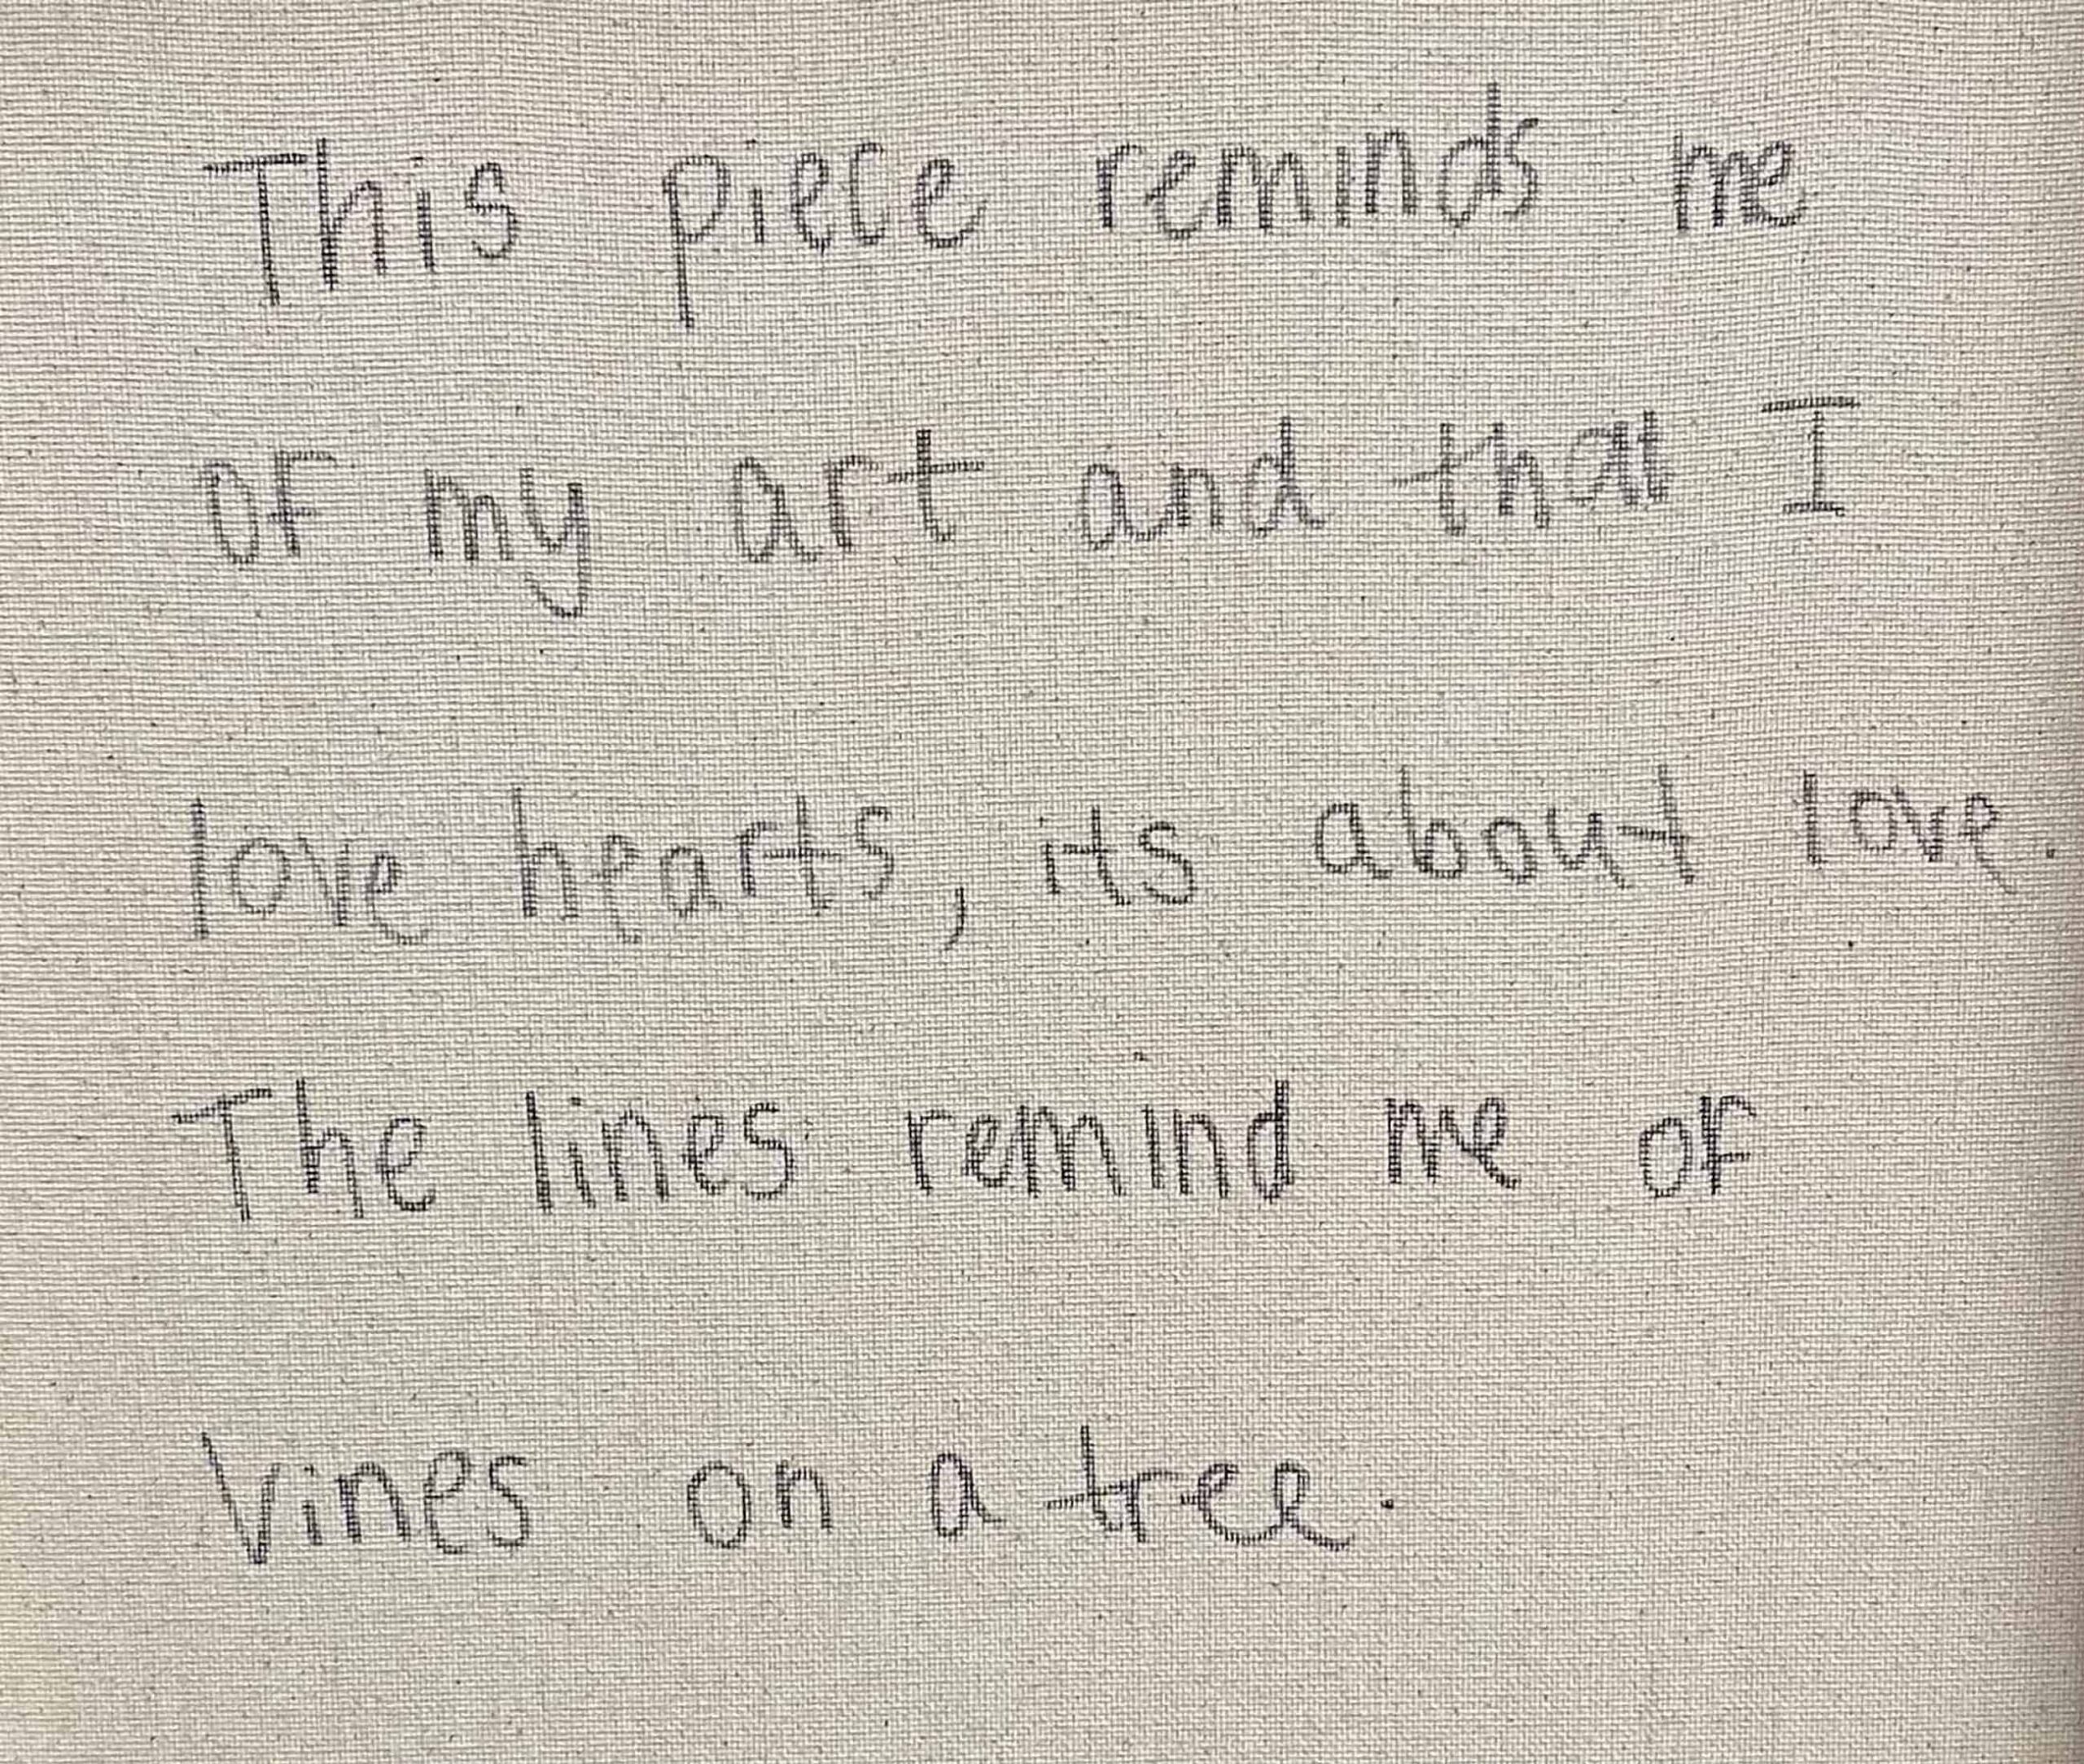 This piece reminds me
of my art and that I
love hearts, its about love.
The lines remind me of
Vines on a tree.